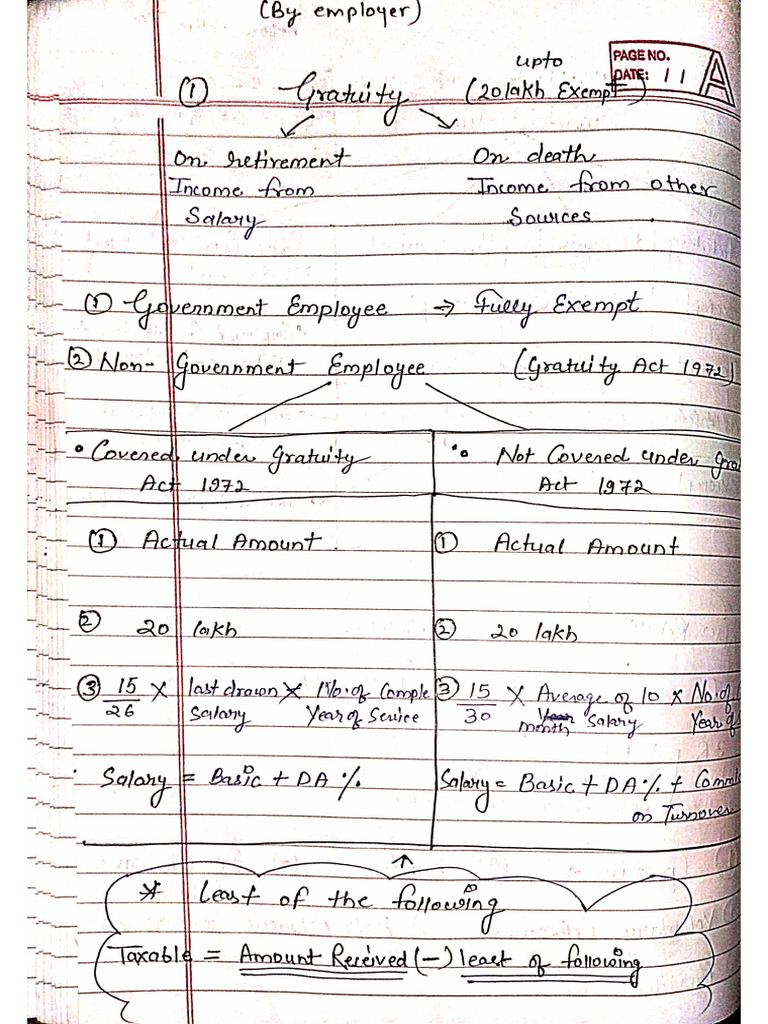 (By employer)
PAGE NO.
DATE: 11
A
① Gratuity upto (20 lakh Exempt)
On retirement
Income from
Salary
On death
Income from other
Sources
① Government Employee → Fully Exempt
② Non-Government Employee (Gratuity Act 1972)
• Covered under Gratuity
Act 1972
① Actual Amount
② 20 lakh
③ 15/26 × last drawn Salary × No. of Comple Year of Service
Salary = Basic + DA %
Not Covered under Gra
Act 1972
① Actual Amount
② 20 lakh
③ 15/30 × Average of 10 month Salary × No. of Year of
Salary = Basic + DA % + Comm
on Turnover
* Least of the following
Taxable = Amount Received (-) least of following